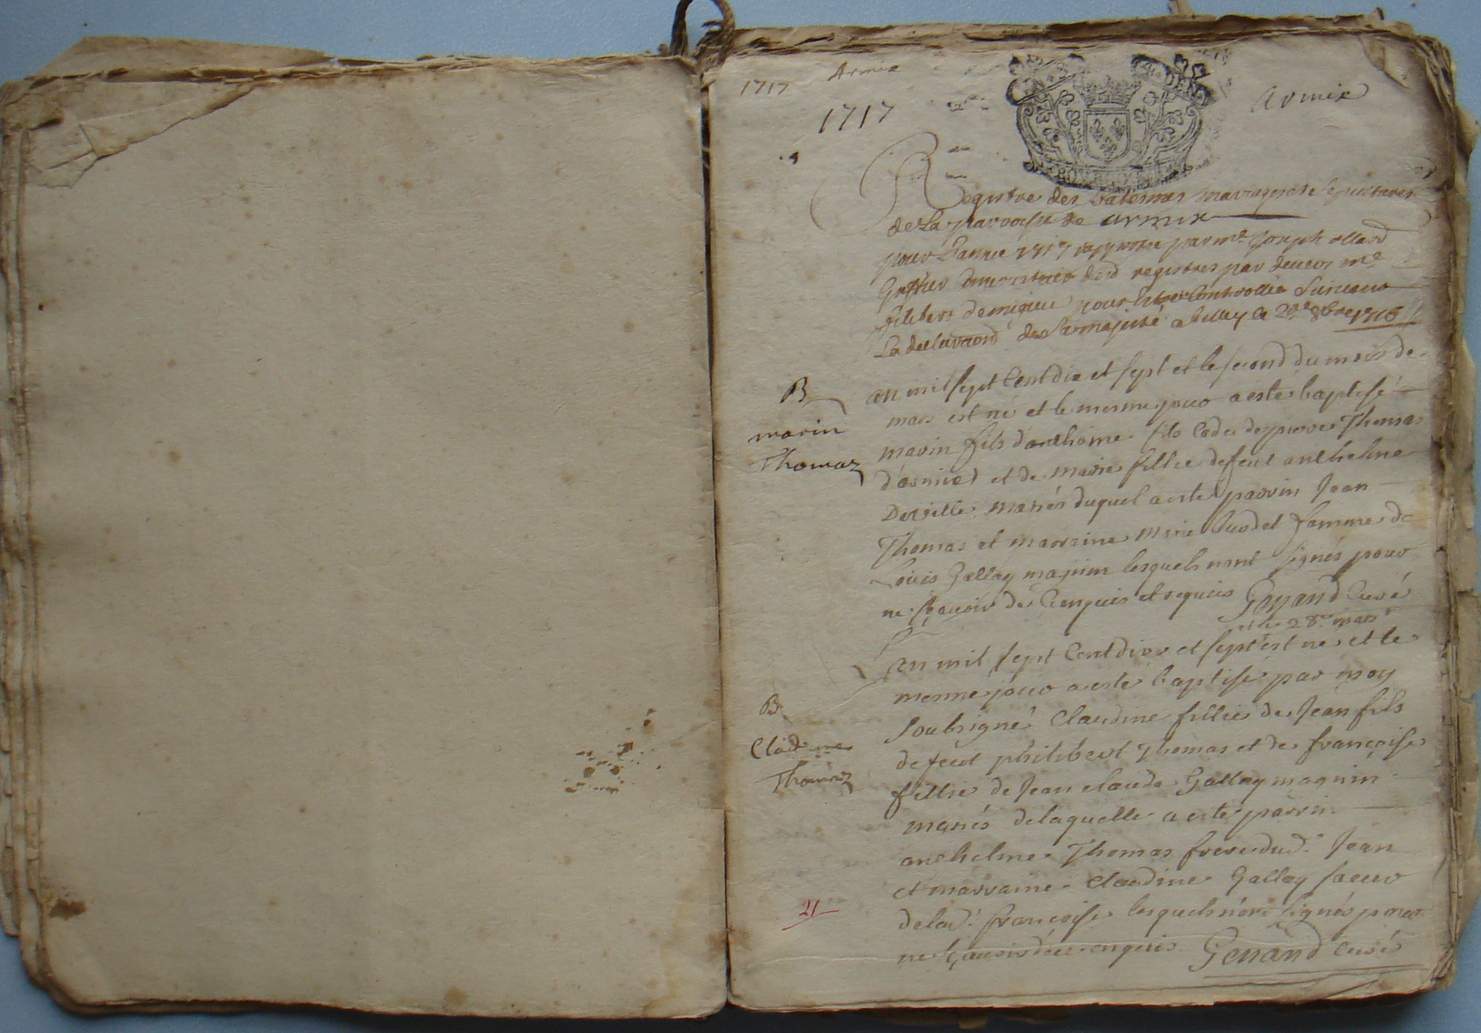 1717 Armix
1717 Armix
Registre des batesmes mariages et sepultures
de La parroisse de armix
pour L'annee 1717 par me Joseph
Greffier des registres par devers me
pour
La de Sa majesté a Belley Ce 20e 8bre 1716
B
marin
Thomaz
an mil sept Cent dix et sept et le second du mois de
mars est né et le mesme jour a esté baptisé
marin fils d'anthoine fils de pierre Thomas
d'armix et de marie fillie de feut anthelme
mariés duquel a esté parrin Jean
Thomas et marraine marie femme de
Louis Gallay magnin lesquels n'ont signés pour
ne sçavoir de enquis et requis Genand Curé
et le 28e mars
L'an mil sept Cent dix et sept est née et le
mesme jour a esté baptisé par moy
soubsigné Claudine fillie de Jean fils
de feut philibert Thomas et de françoise
fillie de Jean claude Gallay magnin
mariés de laquelle a esté parrin
B
Claudine
Thomaz
anthelme Thomas frere dud. Jean
et marraine Claudine Gallay saeur
de lad. françoise lesquels n'ont signés pour
ne sçavoir de enquis Genand Curé
21